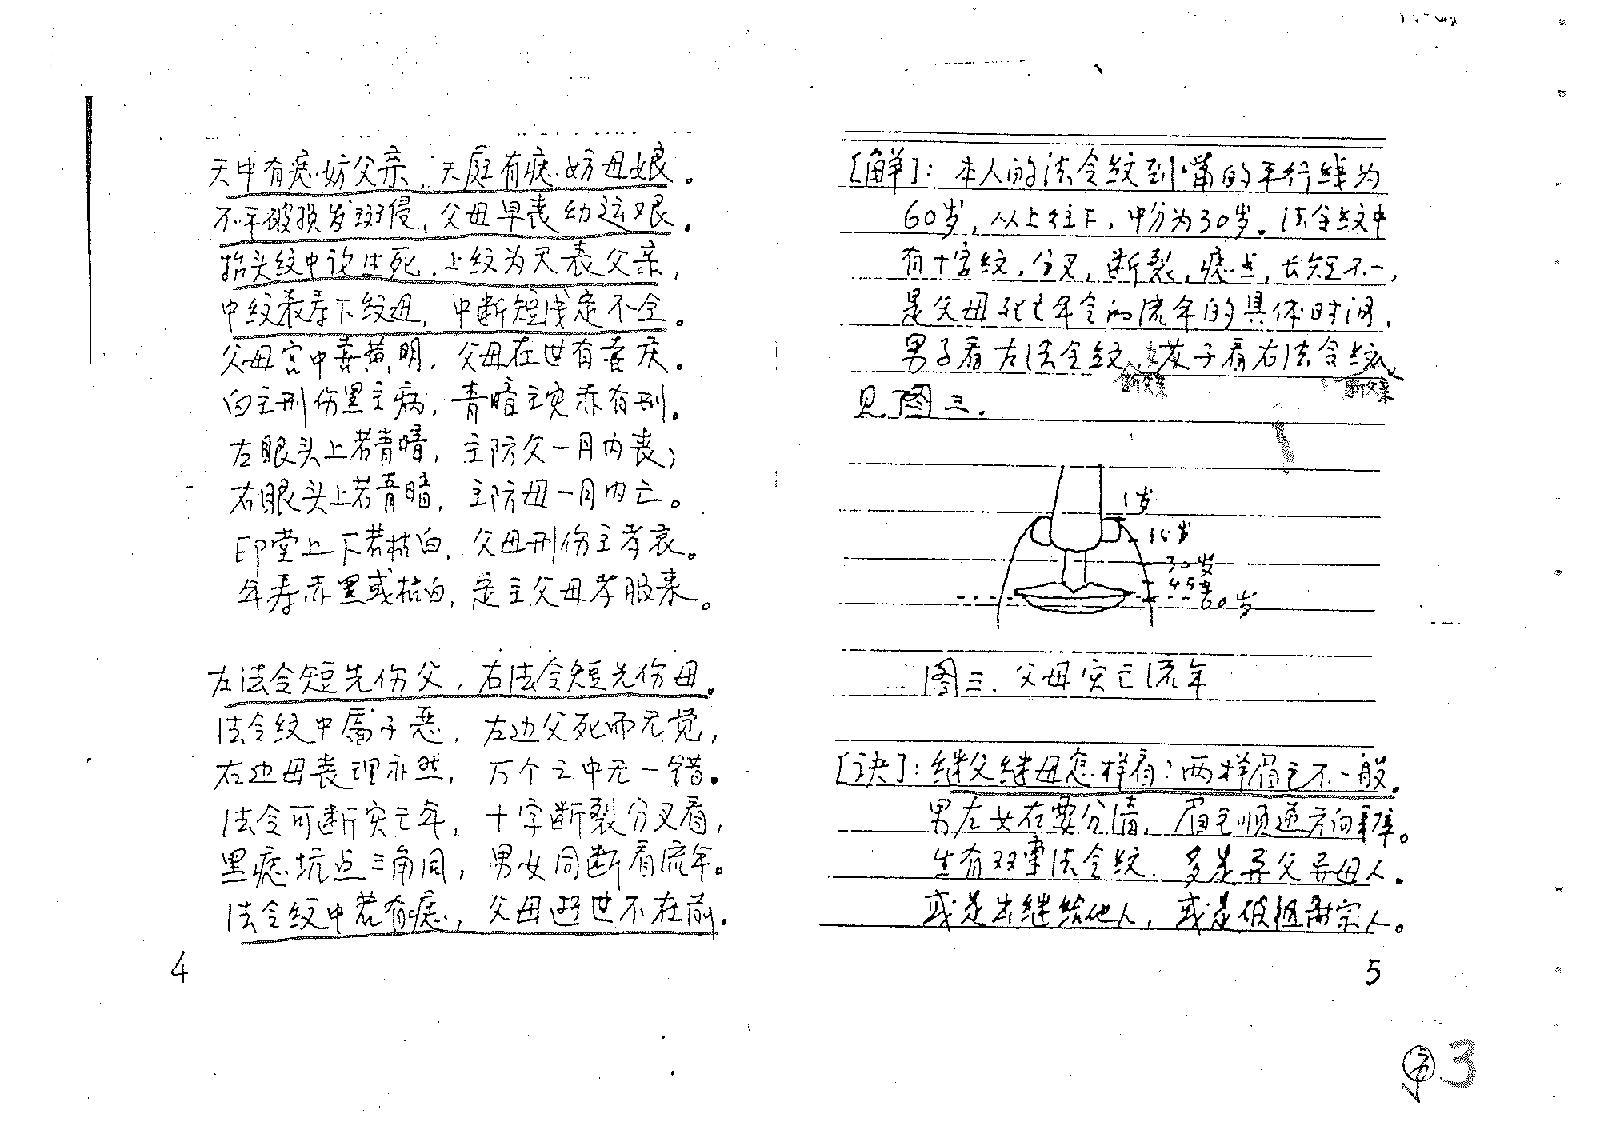 天中有痣妨父亲,天庭有痣妨母娘。
不平破损发斑侵,父母早丧幼运艰。
抬头纹中说生死,上纹为天表父亲,
中纹最寿下纹母,中断短浅定不全。
父母宫中喜黄明,父母在世有喜庆。
白主刑伤黑主病,青暗主灾赤有刑。
左眼头上若青暗,主防父一月内丧;
右眼头上若青暗,主防母一月内亡。
印堂上下若枯白,父母刑伤主孝哀。
年寿赤黑或枯白,定主父母孝服来。
左法令短先伤父,右法令短先伤母。
法令纹中属子恶,左边父死而无觉,
右边母丧理亦然,万个之中无一错。
法令可断灾亡年,十字断裂分叉看,
黑痣坑点三角同,男女同断看流年。
法令纹中若有痣,父母逝世不在前。
4
[解]:本人的法令纹到嘴的平行线为
60岁,从上往下,中分为30岁。法令纹中
有十字纹,分叉,断裂,痣点,长短不一,
是父母死亡年令的流年的具体时间,
男子看左法令纹,女子看右法令纹
见图三.
1岁
15岁
30岁
45岁
60岁
图三.父母灾亡流年
[诀]:继父继母怎样看:两样眉毛不一般。
男左女右要分清,眉毛顺逆方向
生有双重法令纹,多是异父异母人。
或是出继给他人,或是
5
3